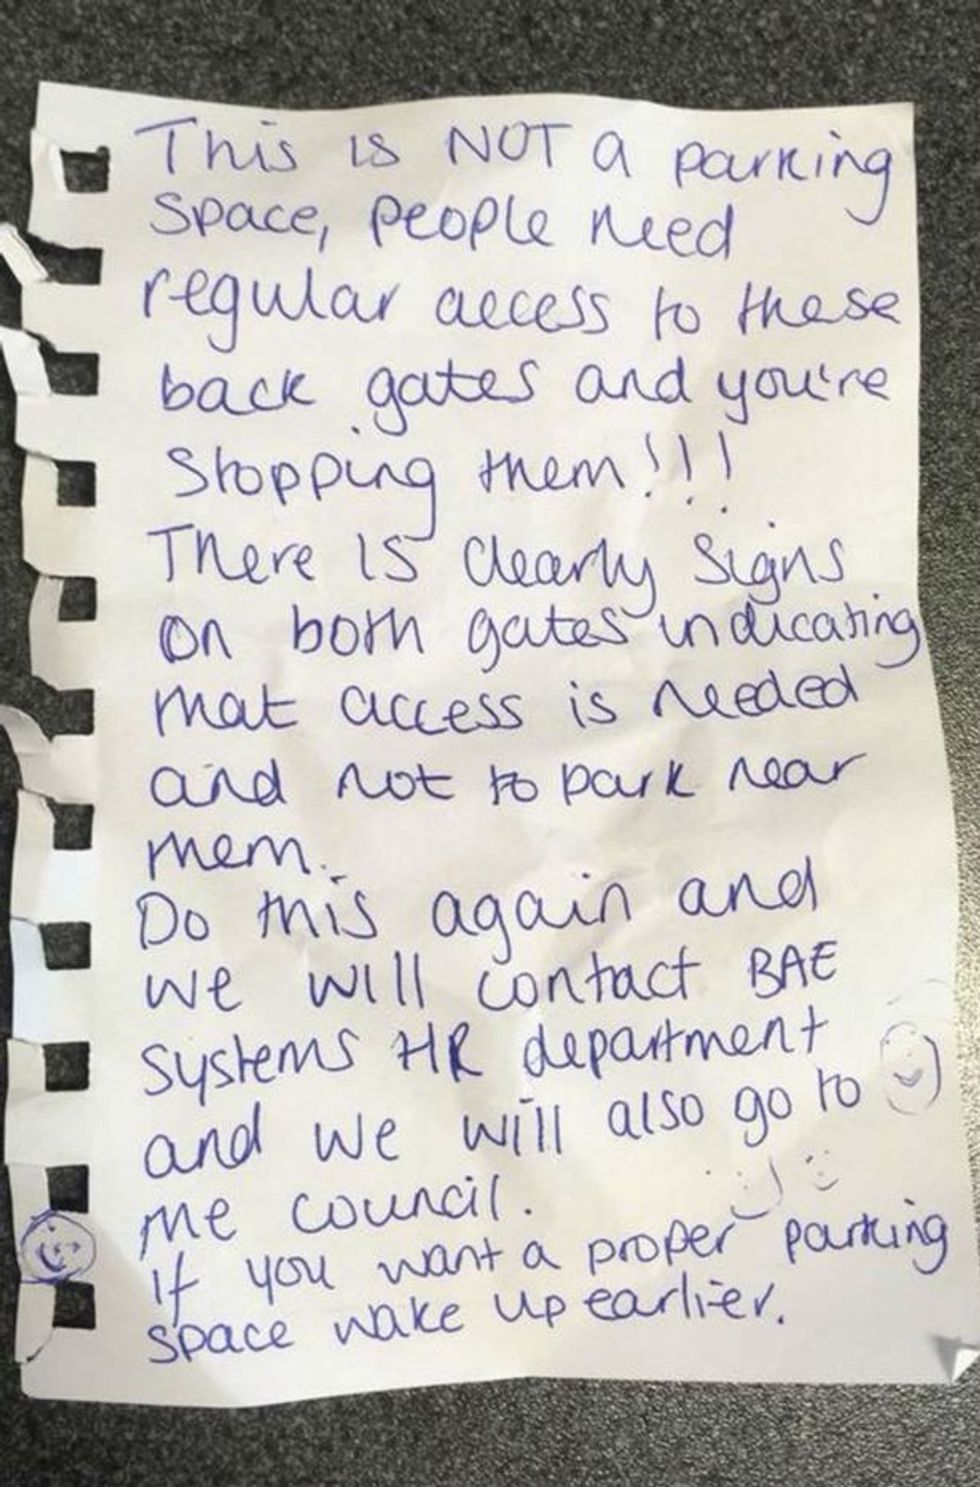 This is NOT a parking
space, people need
regular access to these
back gates and you're
stopping them!!!
There is clearly signs
on both gates indicating
that access is needed
and not to park near
them.
Do this again and
we will contact BAE
systems HR department
and we will also go to
the council.
If you want a proper parking
space wake up earlier.